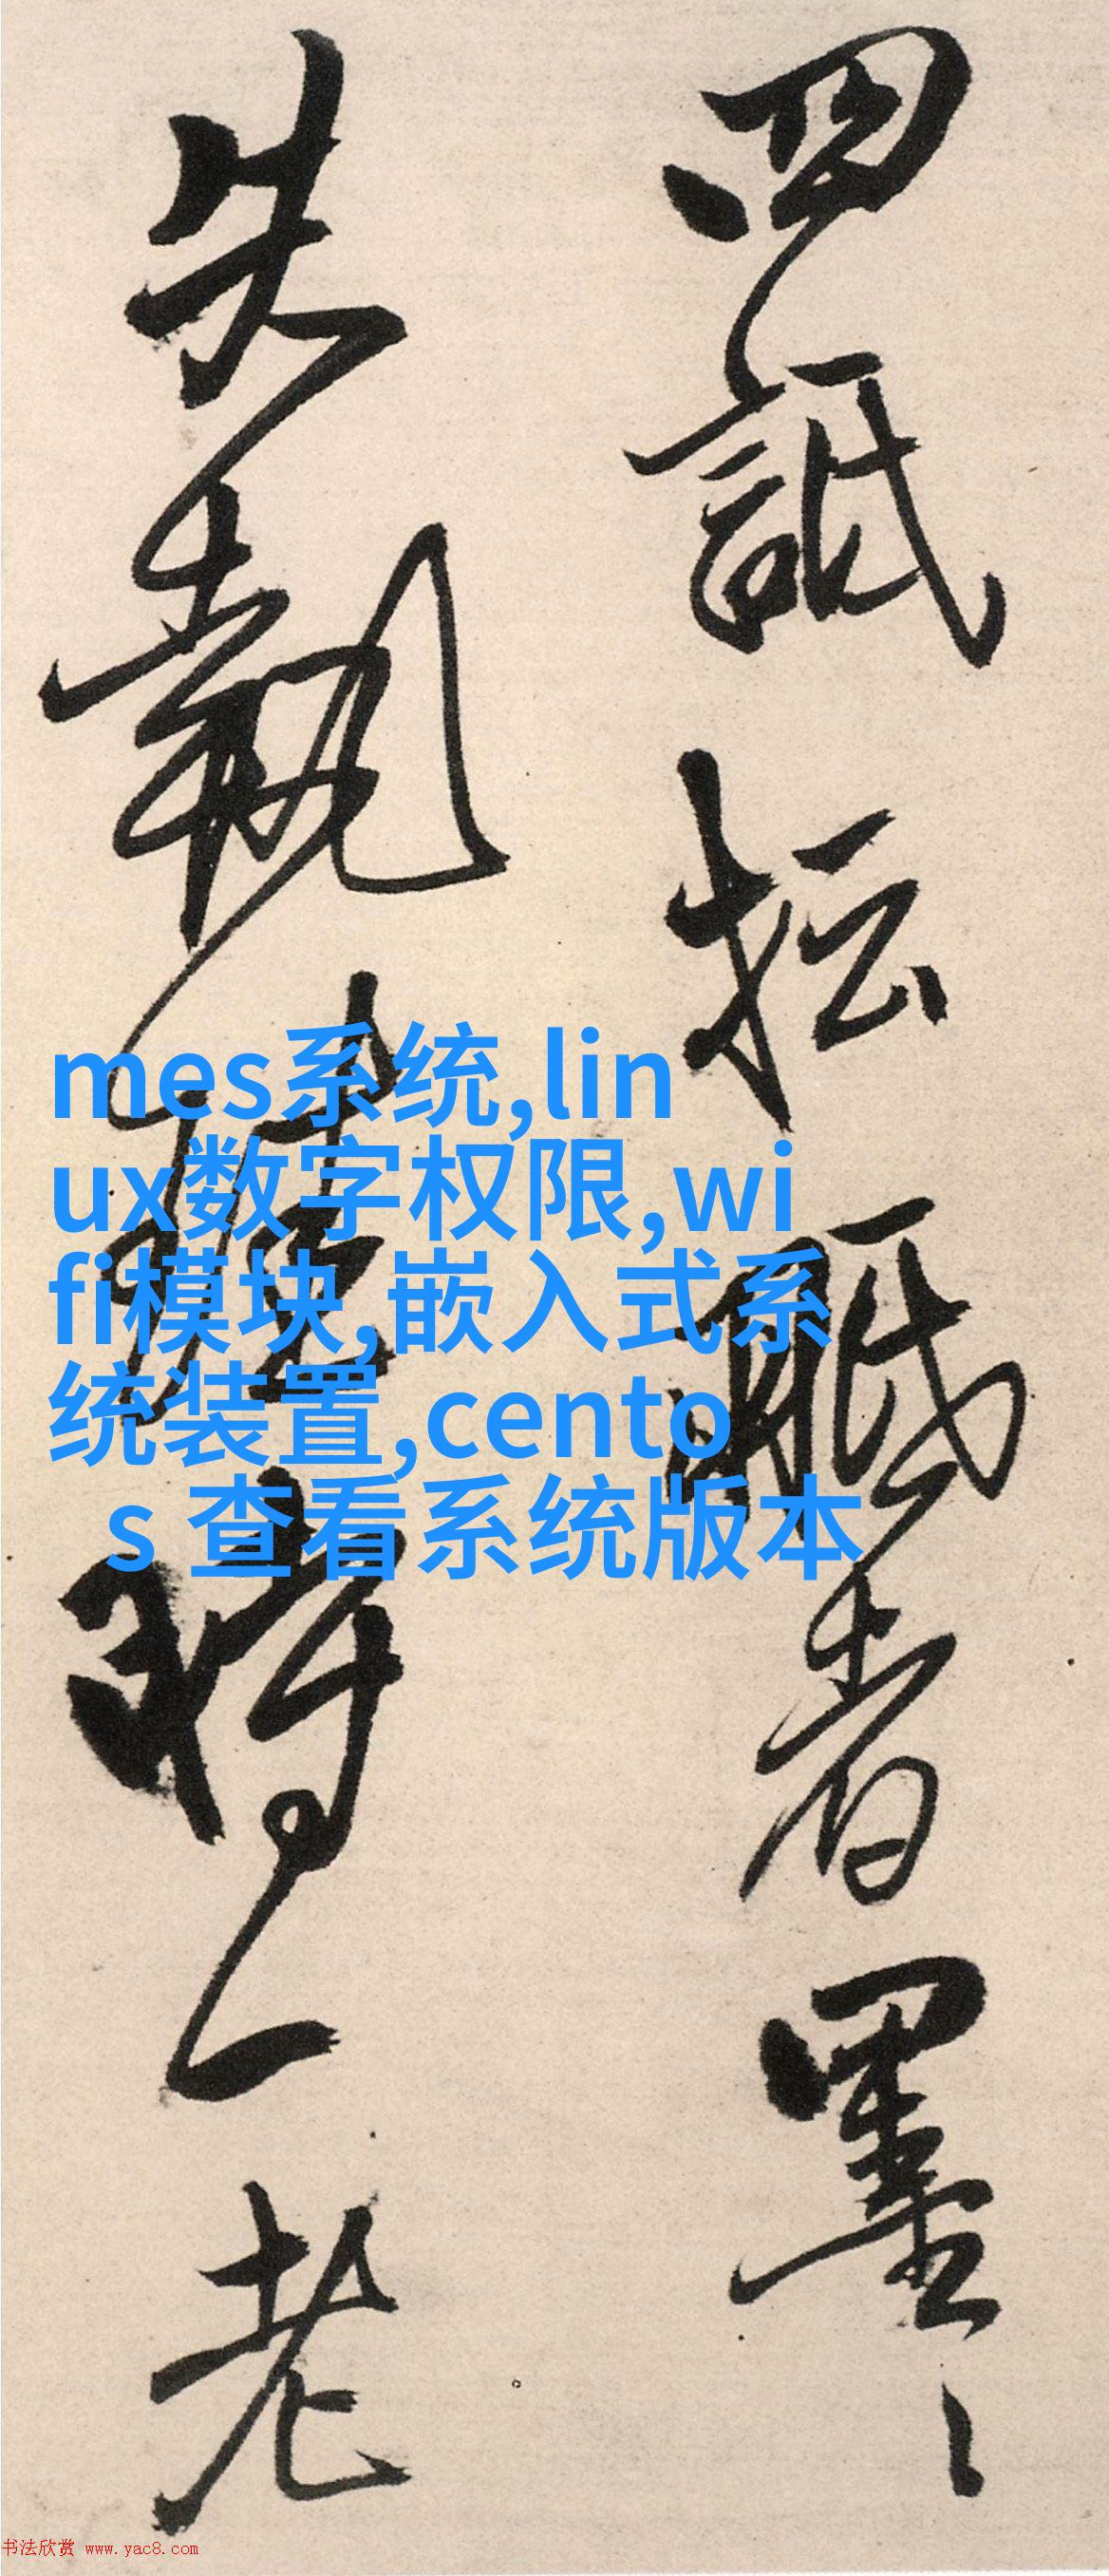 四詆者墨
失執時一老
mes系统,lin
ux数字权限,wi
fi模块,嵌入式系
统装置,cento
s 查看系统版本
书法欣赏 www.yac8.com